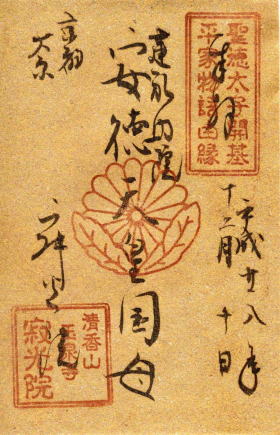 聖徳太子開基
平家物語由縁
奉拝
平成廿八年
十二月十日
建礼門院
安徳天皇国母
京都
大原
清香山
玉泉寺
寂光院